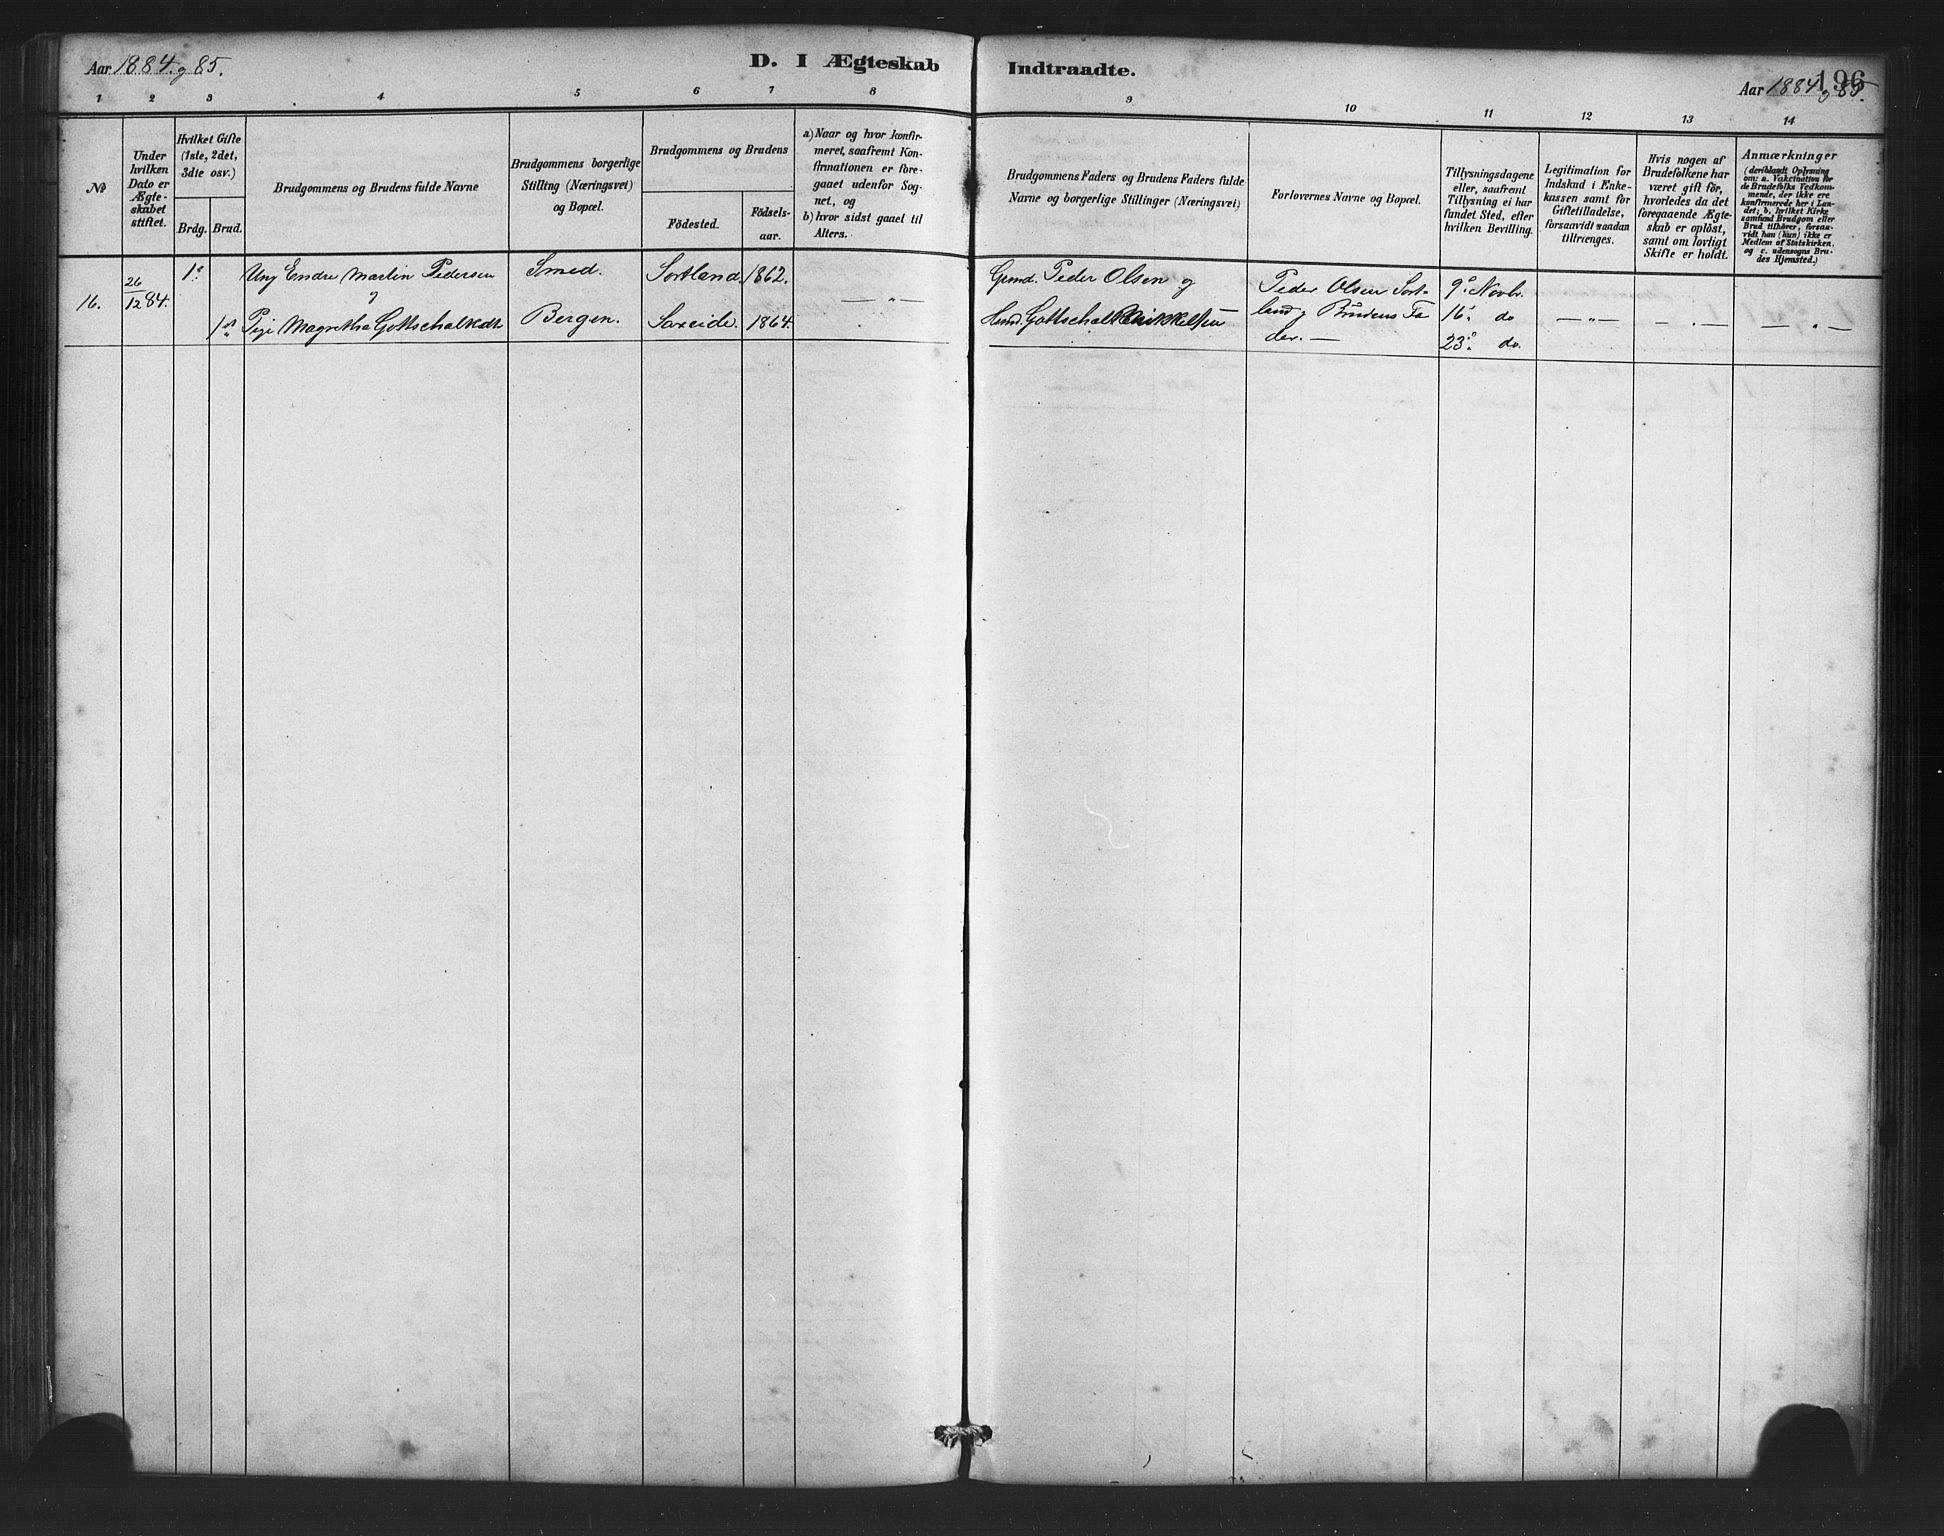 Aar 1884. og 85.
D. I Ægteskab
Indtraadte.
196
Aar 1884 og 85.
1 2 3 4 5 6 7 8 9 10 11 12 13 14
No
Under
hvilken
Dato er
Ægte-
skabet
stiftet.
Hvilket Gifte
(1ste, 2det,
3die osv.)
Brdg. Brud.
Brudgommens og Brudens fulde Navne
Brudgommens borgerlige
Stilling (Næringsvei)
og Bopæl.
Brudgommens og Brudens
Födested.
Födsels-
aar.
a) Naar og hvor konfir-
meret, saafremt Kon-
firmationen er fore-
gaaet udenfor Sog-
net, og
b) hvor sidst gaaet til
Alters.
Brudgommens Faders og Brudens Faders fulde
Navne og borgerlige Stillinger (Næringsvei)
Forlovernes Navne og Bopæl.
Tillysningsdagene
eller, saafremt
Tillysning ei har
fundet Sted, efter
hvilken Bevilling.
Legitimation for
Indskud i Enke-
kassen samt for
Giftetilladelse,
forsaavidt saadan
tiltrænges.
Hvis nogen af
Brudefolkene har
været gift för,
hvorledes da det
foregaaende Ægte-
skab er oplöst,
samt om lovligt
Skifte er holdt.
Anmærkninger
(deriblandt Oplysning
om: a. Vakcination for
de Brudefolks Vedkom-
mende, der ikke ere
konfirmerede her i Lan-
det; b, hvilket Kirke
samfund Brudgom eller
Brud tilhörer, forsaa-
vidt han (hun) ikke er
Medlem af Statskirken,
og c. udensogns Bru-
des Hjemsted.)
16.
26
12 84.
1ste
Ung Endre Martin Pedersen
og
1ste Pige Magretha Gottschalksdtr
Smed.
Bergen.
Sortland. 1862.
Saxeide. 1864.
— " —
Gmd. Peder Olsen og
Hmd. Gottschalk Mikkelsen
Peder Olsen Sort-
land og Brudens Fa
der. —
9de Novbr.
16de do
23de do.
— " —
— " —
— " —